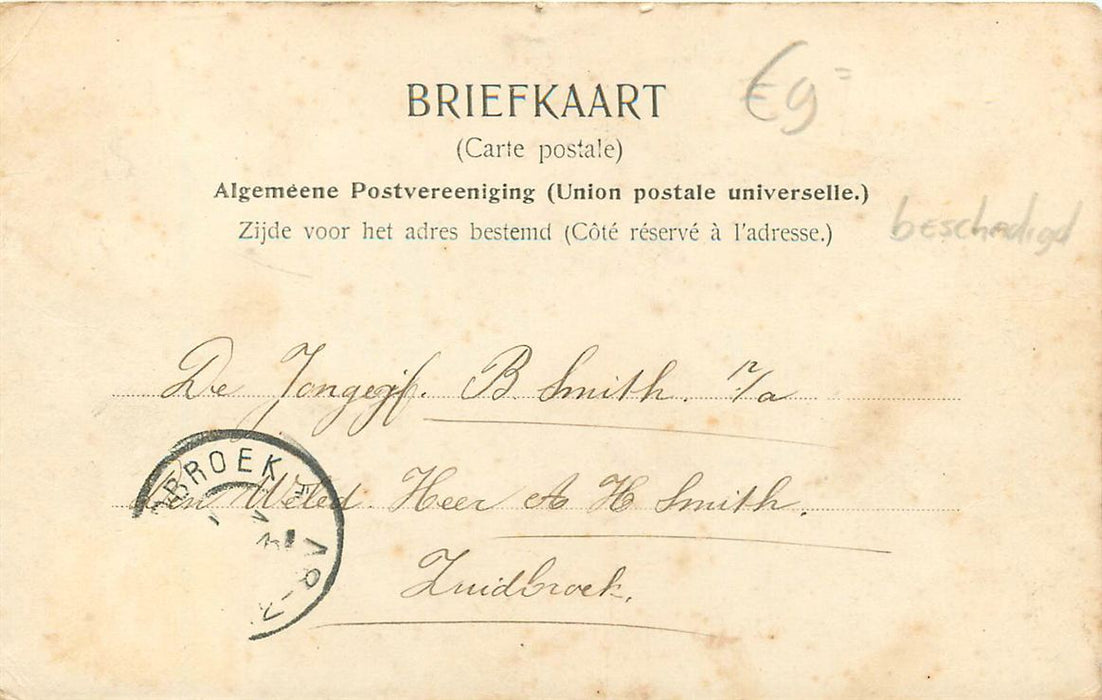 BRIEFKAART
€9=
(Carte postale)
Algemeene Postvereeniging (Union postale universelle.)
Zijde voor het adres bestemd (Côté réservé à l'adresse.)
beschadigd
De Jongejf. B Smith. p/a
den Weled. Heer A H Smith.
Zuidbroek.
BROEK